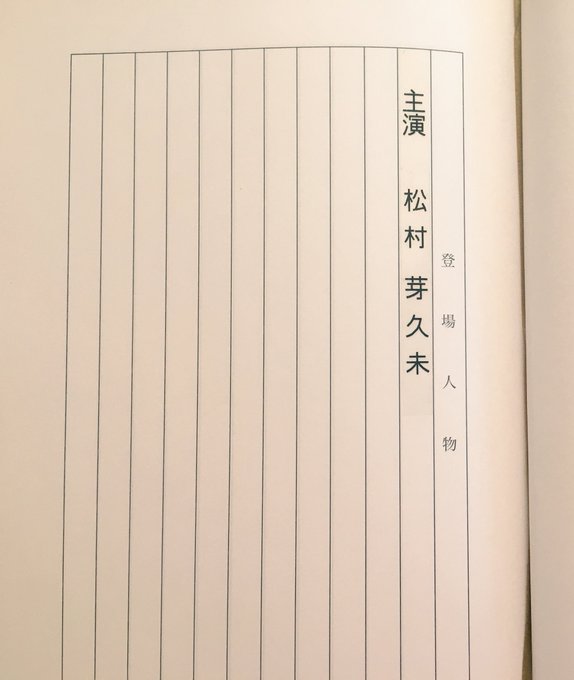 登場人物
主演 松村 芽久未